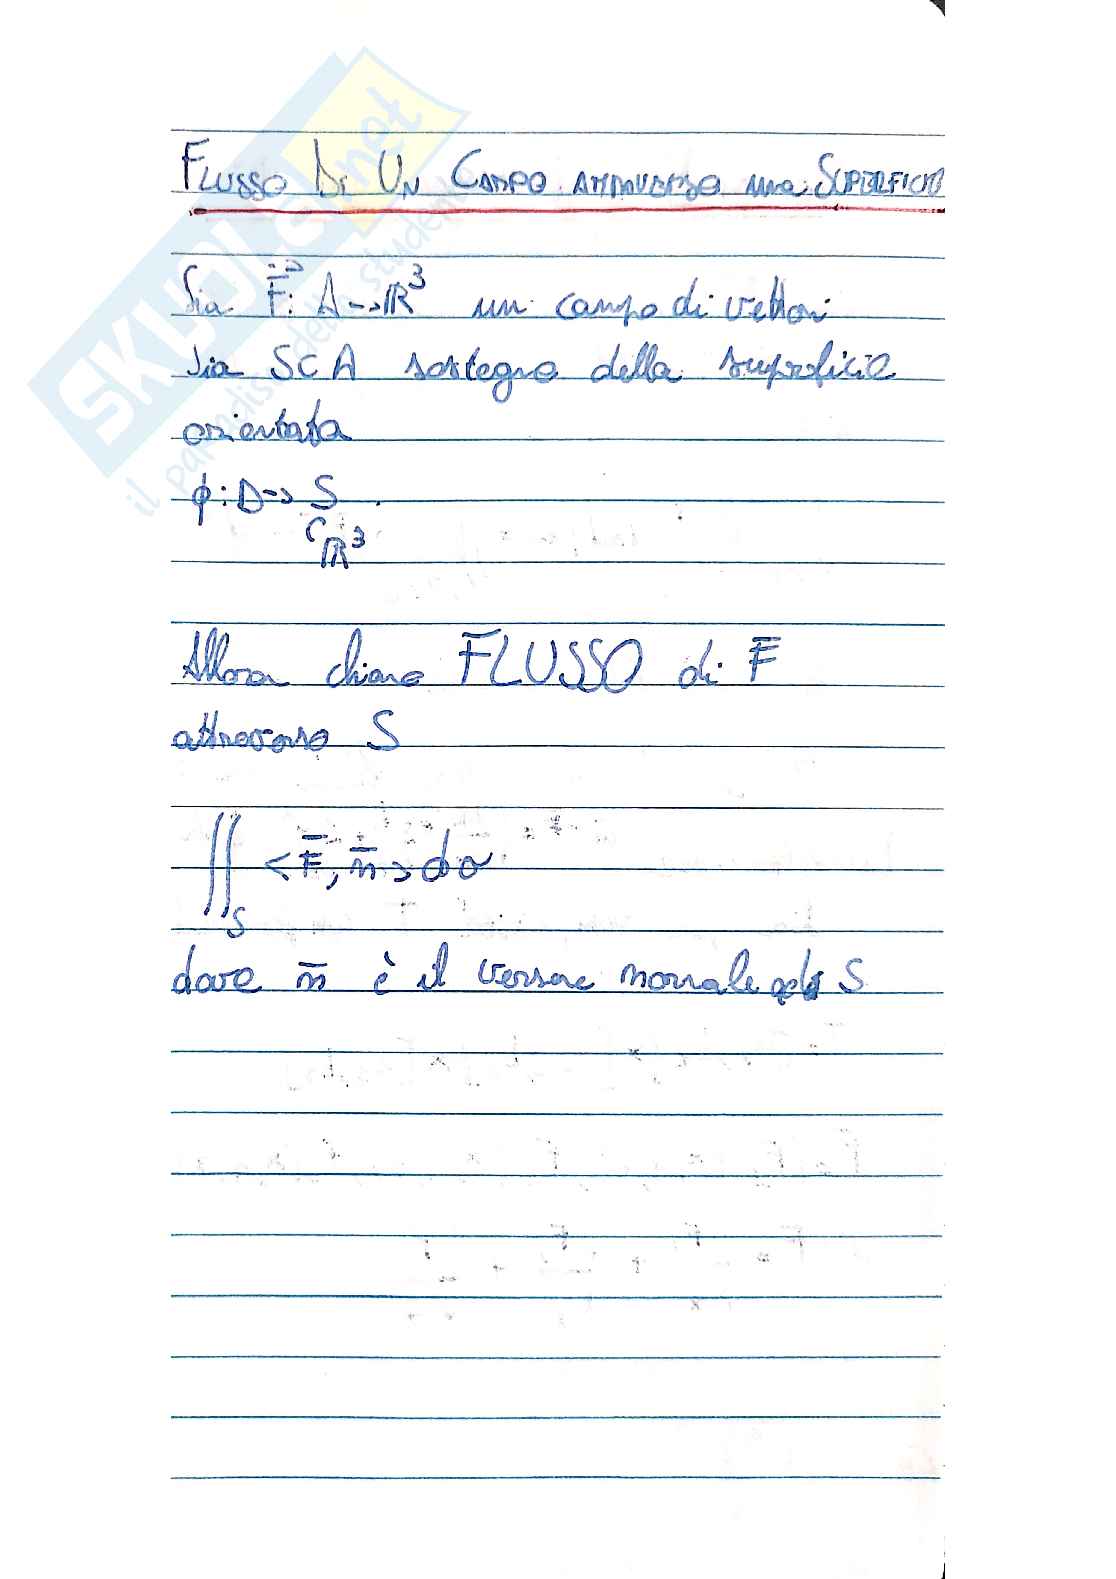 FLUSSO DI UN CAMPO ATTRAVERSO una SUPERFICIE
Sia F⃗: A→ℝ³ un campo di vettori
Sia S⊂A sostegno della superficie
orientata
ϕ: D→ S
⊂ℝ³
Allora chiamo FLUSSO di F̄
attraverso S
∬_S <F̄, n̄> dσ
dove n̄ è il versore normale ad S
SKUOLA.net
il paradiso dello studente